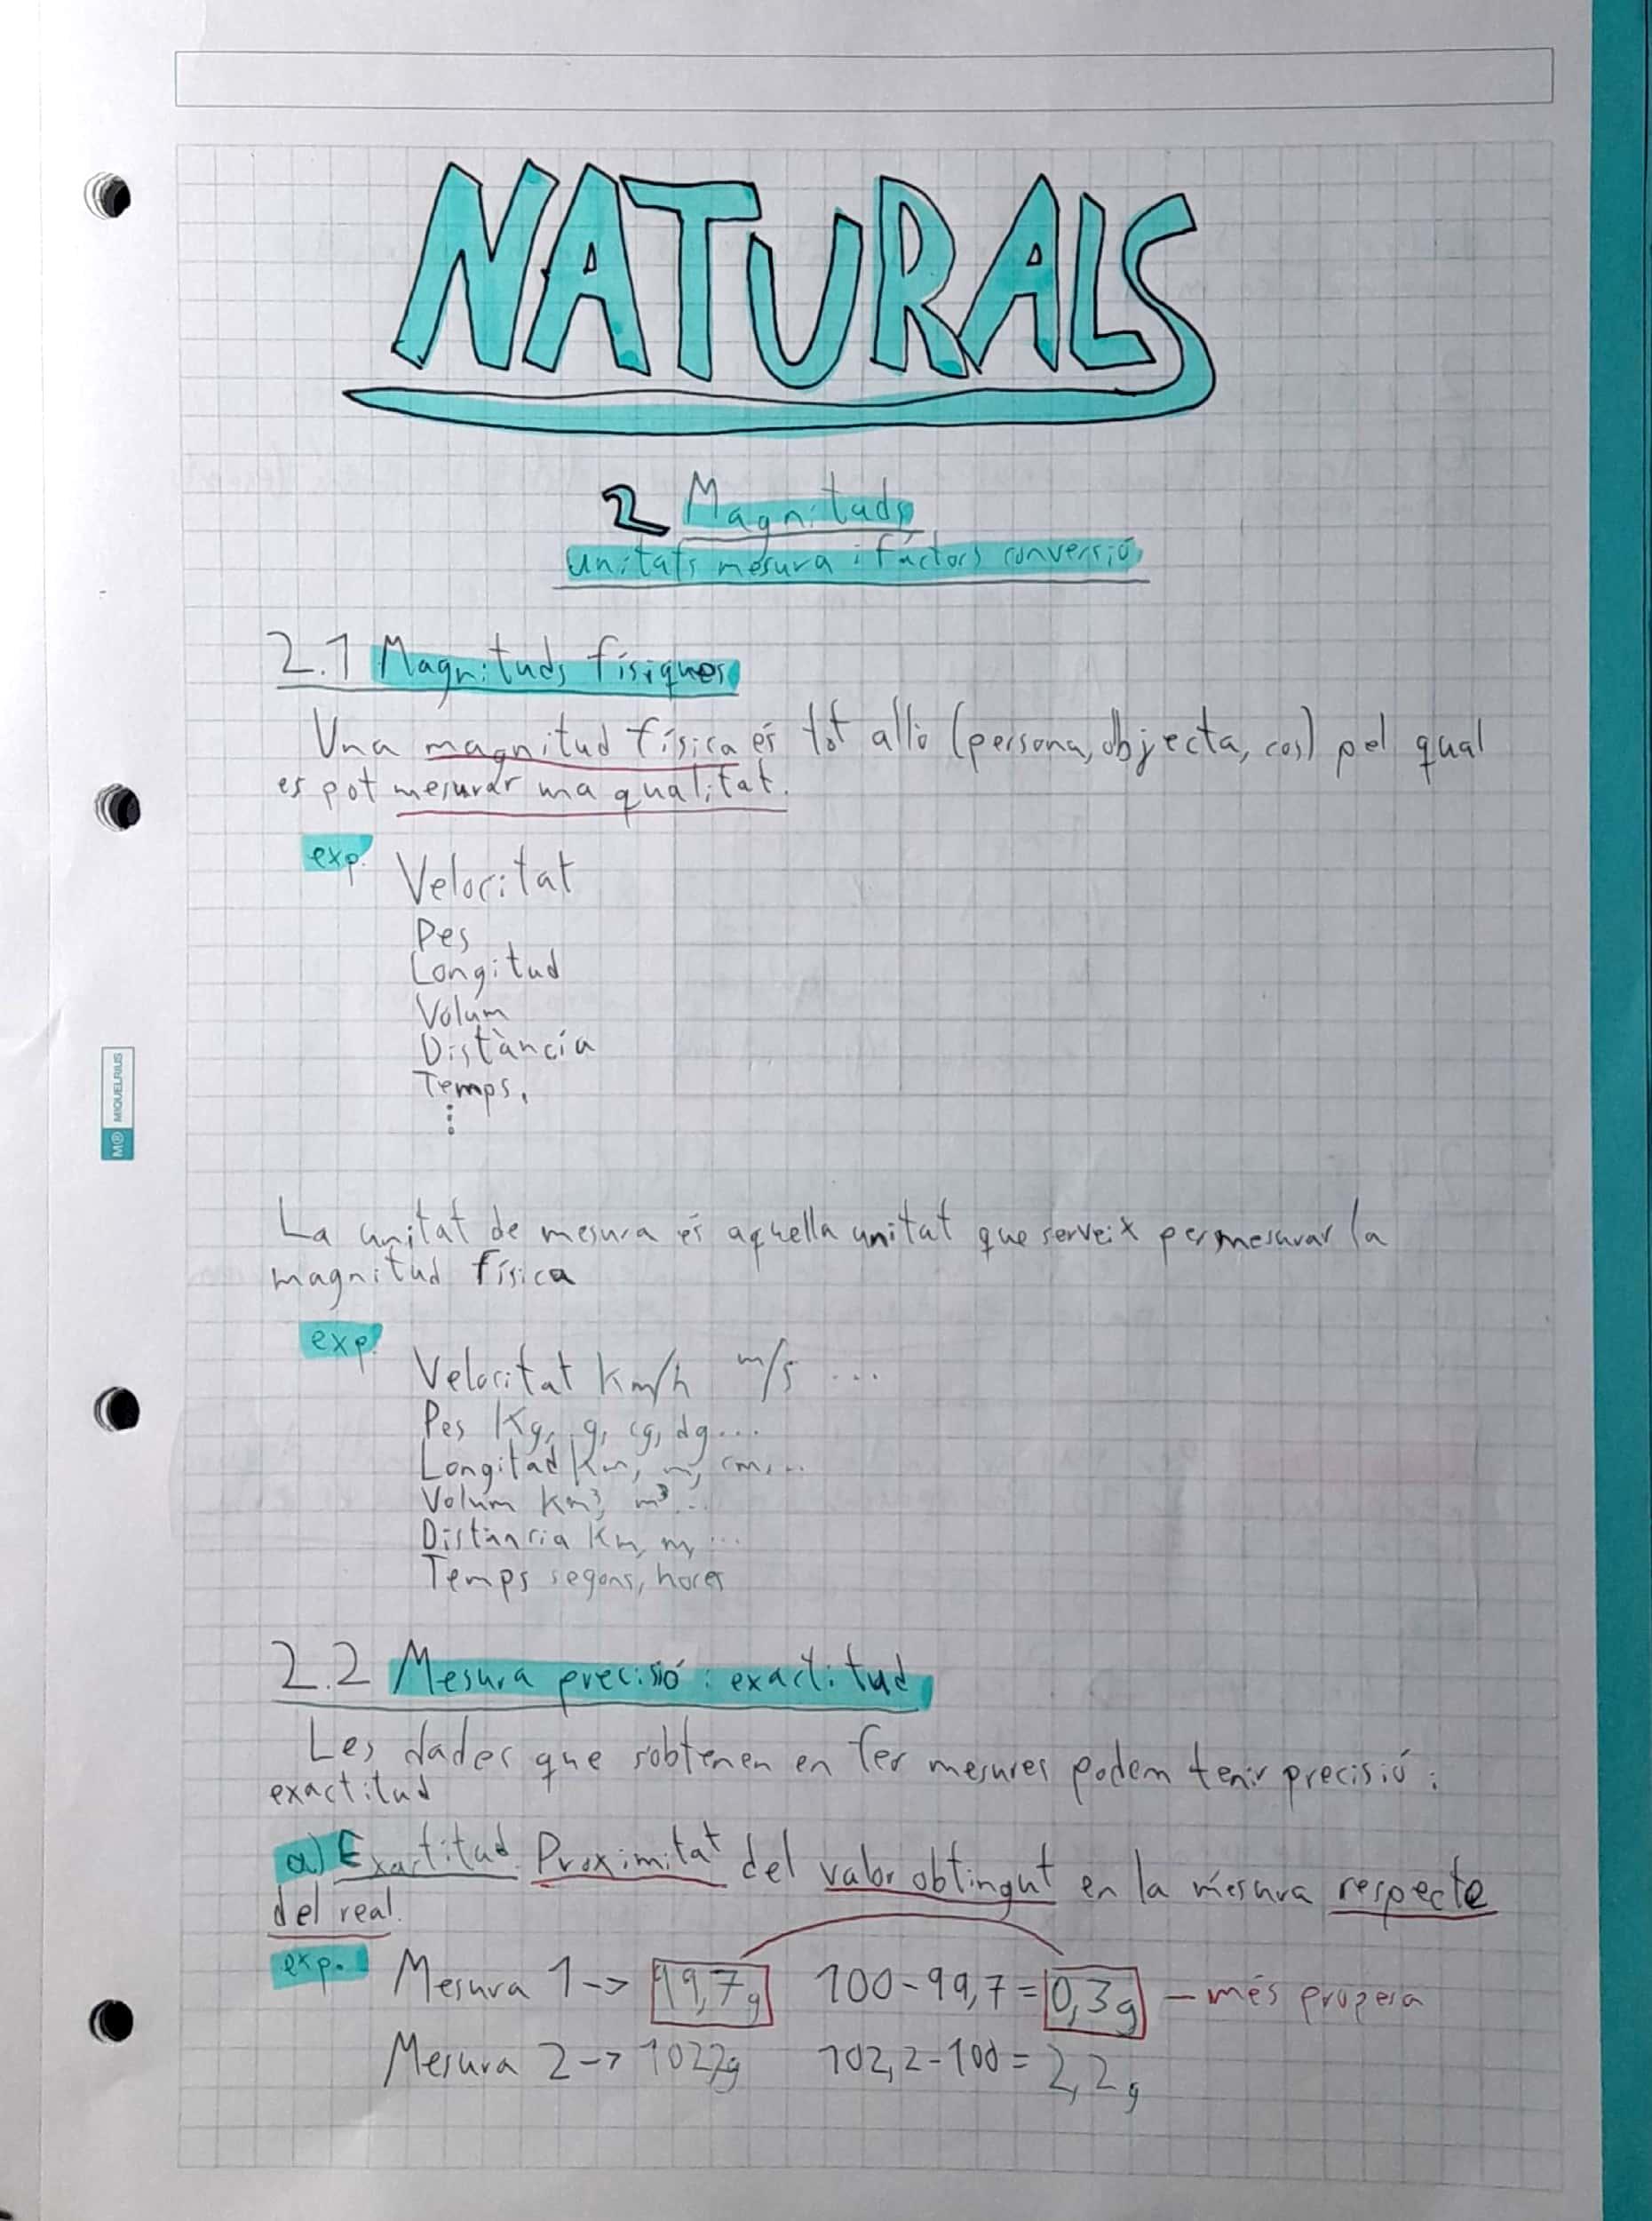 NATURALS
2 Magnituds
unitats mesura i factors conversió
2.1 Magnituds físiques
Una magnitud física és tot allò (persona, objecta, cos) pel qual
es pot mesurar una qualitat.
exp. Velocitat
Pes
Longitud
Volum
Distància
Temps.
MIQUELRIUS
La unitat de mesura és aquella unitat que serveix per mesurar la
magnitud física
exp. Velocitat Km/h m/s ...
Pes Kg, g, cg, dg...
Longitud Km, m, cm,..
Volum Km³, m³..
Distància Km, m, ...
Temps segons, hores
2.2 Mesura precisió i exactitud
Les dades que s'obtenen en fer mesures podem tenir precisió i
exactitud
a) Exactitud Proximitat del valor obtingut en la mesura respecte
del real.
exp. Mesura 1 -> 99,7g 100-99,7=0,3g - més propera
Mesura 2 -> 102,2g 102,2-100= 2,2g